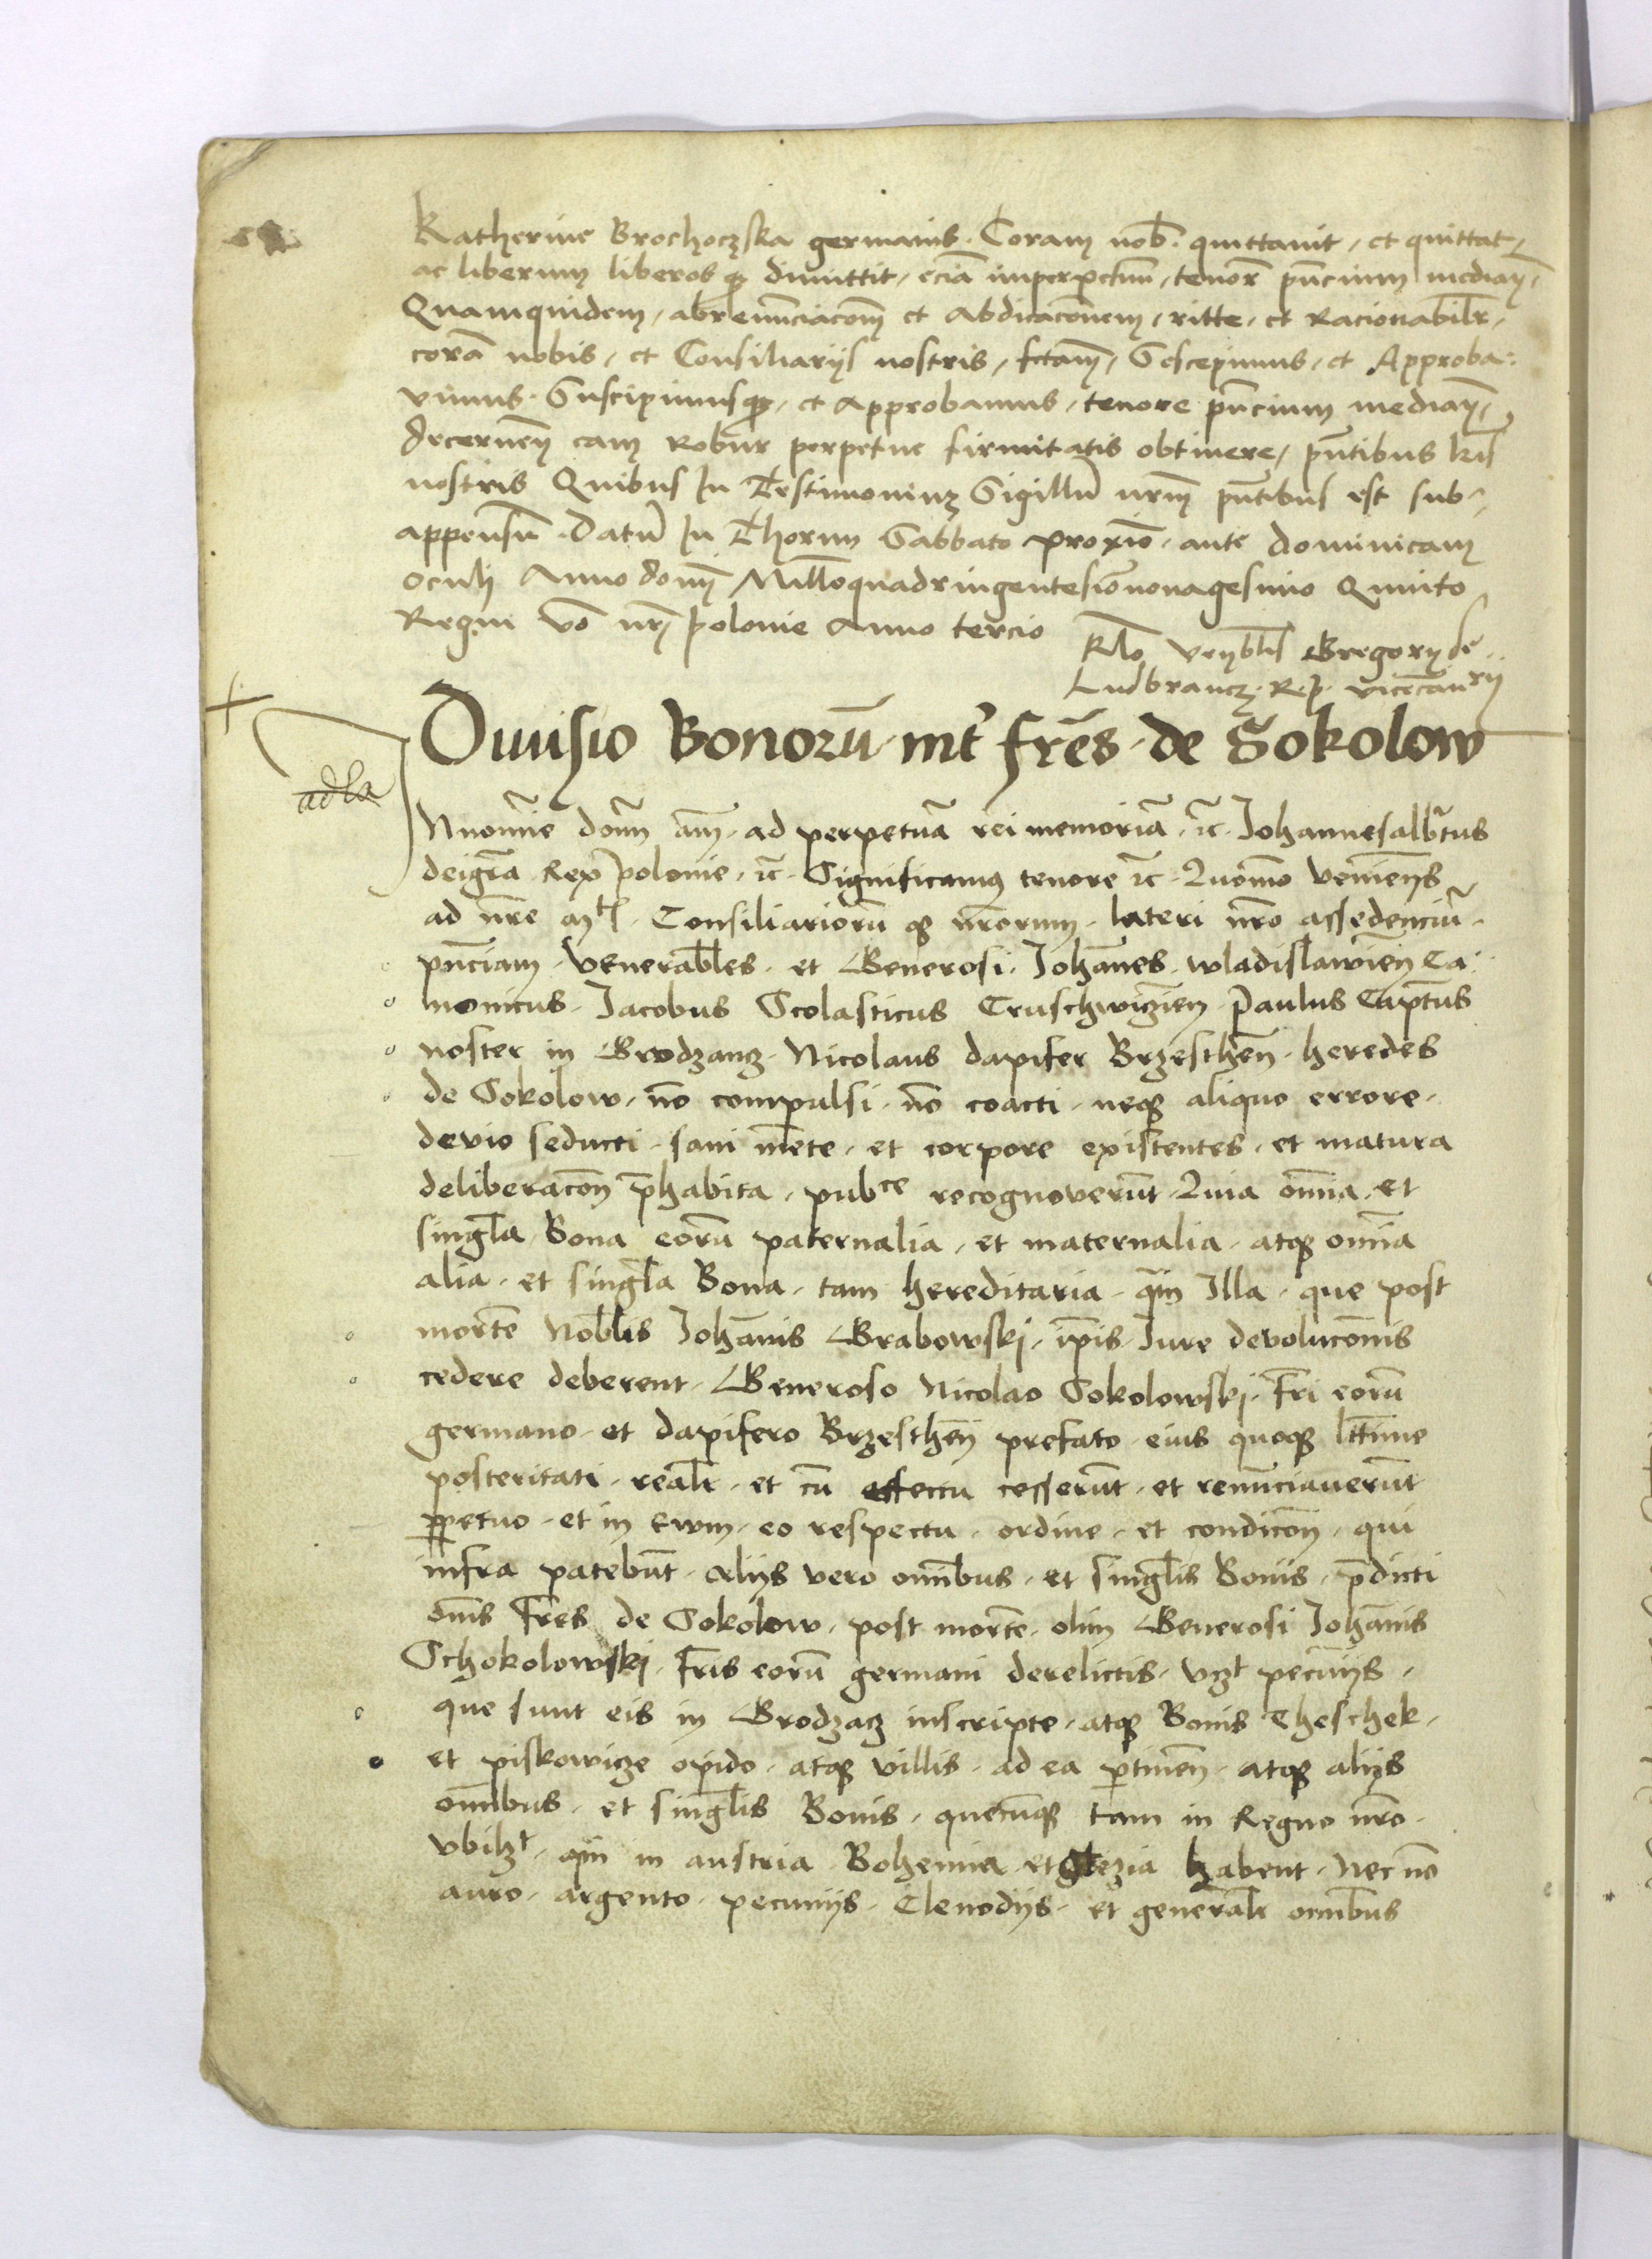 Katherine Brochoczska germanis. Coram nob. quittavit, et quittat,
ac liberum liberosq; dimittit, eciā imperpetuū, tenorē pn̄cium mediañ,
Quamquidem, abrenūnciacōem et Abdicacōnem, ritte, et Racionabilr̄,
corā nobis, et Consiliariis nostris, fctam, Suscepimus, et Approba:
vimus. Suscipimusq;, et Approbamus, tenore pn̄cium mediañ,
decerneñ eam Robur perpetue firmitatis obtinere, pn̄tibus lr̄is
nostris Quibus In Testimonium Sigillū nr̄m pn̄tibus est sub-
appensū. Datū In Thorun Sabbato proxīo ante dominicam
oculi Anno domī Millōquadringentesīononagesimo Quinto
Regni vō nr̄i polonie Anno tercio
Rlō Ven̄blis Gregorij de
Ludbrancz R. p. vicecan̄rij
Divisio Bonorū int̓ fr̄es de Sokolow
adla
N nomīe domī am̄. ad perpetuā rei memoriā, ꝛc̄. Johannesalbr̄tus
deigr̄a Rex polonie, ꝛc̄. Significamus tenore ꝛc̄. Quomō venieñs
ad nr̄e mtis. Consiliariorū q; nr̄orum, lateri nr̄o assedenciū
pn̄ciam, Venerabl̄es, et Generosi, Johan̄es wladislawien̄ Ca:
nonicus, Jacobus Scolasticus Cruschwiczien̄ Paulus Capt̄us
noster in Brodzancz, Nicolaus dapifer Brzesthen̄, heredes
de Sokolow, nō compulsi, nō coacti, neq; aliquo errore,
devio seducti, sani mēte, et corpore existentes, et matura
deliberacōn p̄habita, pubce recognoverūt, Quia om̄ia, et
singl̄a Bona eorū paternalia, et maternalia, atq; om̄ia
alia, et singl̄a Bona, tam hereditaria, qm̄ Illa, que post
mortē Nobl̄is Johan̄is Grabowskj, ip̄is Jure devolucōnis
cedere deberent, Generoso Nicolao Sokolowskj, Fr̄i eorū
germano, et dapifero Brzesthen̄ prefato, eius quoq; ltt̄ime
posteritati, realr̄, et cū effectu cesserūt, et renūnciaverūt
ꝑpetuo, et in Ewm, eo respectu, ordine, et condicōn, qui
infra patebūt, Aliis vero om̄ibus, et singl̄is Bonis, p̄dicti
om̄s Fr̄es de Sokolow, post mortē, olim Generosi Johan̄is
Schokolowskj, Fr̄is eorū germani derelictis, vczt pecuniis,
que sunt eis in Brodzacz inscripte, atq; Bonis Cheschek,
et piskowicze opido, atq; villis, ad ea ꝑtinen̄, atq; aliis
om̄ibus, et singl̄is Bonis, quecūq; tam in Regno nr̄o,
vbilzt, qm̄ in austria Bohemia et Slezia habent, Nec nō
auro, argento, pecuniis, Clenodiis, et generalr̄ om̄ibus